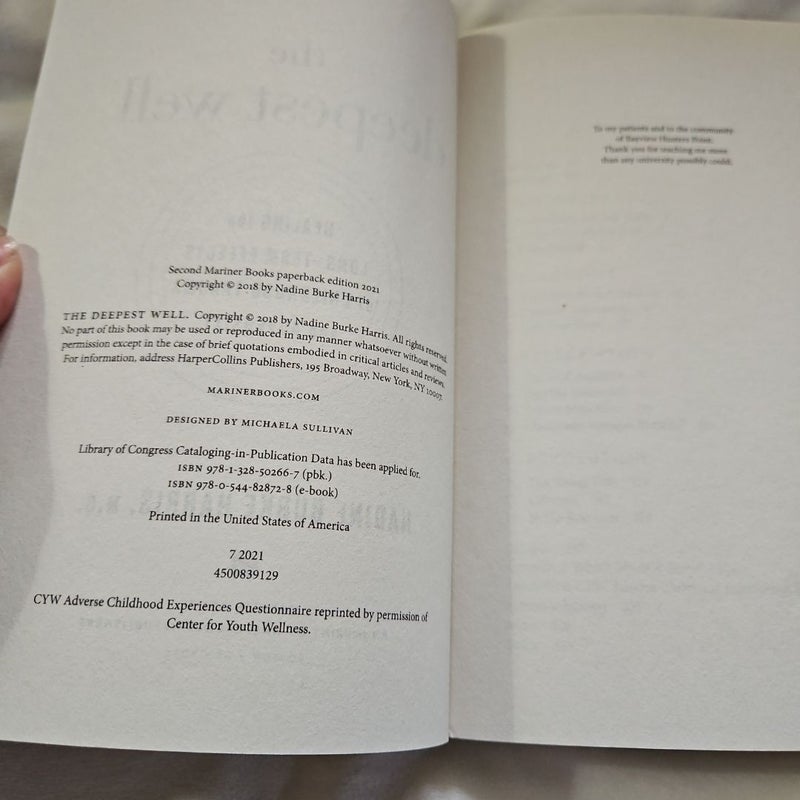 Second Mariner Books paperback edition 2021
Copyright © 2018 by Nadine Burke Harris
THE DEEPEST WELL. Copyright © 2018 by Nadine Burke Harris. All rights reserved.
No part of this book may be used or reproduced in any manner whatsoever without written
permission except in the case of brief quotations embodied in critical articles and reviews.
For information, address HarperCollins Publishers, 195 Broadway, New York, NY 10007.
MARINERBOOKS.COM
DESIGNED BY MICHAELA SULLIVAN
Library of Congress Cataloging-in-Publication Data has been applied for.
ISBN 978-1-328-50266-7 (pbk.)
ISBN 978-0-544-82872-8 (e-book)
Printed in the United States of America
7 2021
4500839129
CYW Adverse Childhood Experiences Questionnaire reprinted by permission of
Center for Youth Wellness.
To my patients and to the community
of Bayview Hunters Point.
Thank you for teaching me more
than any university possibly could.